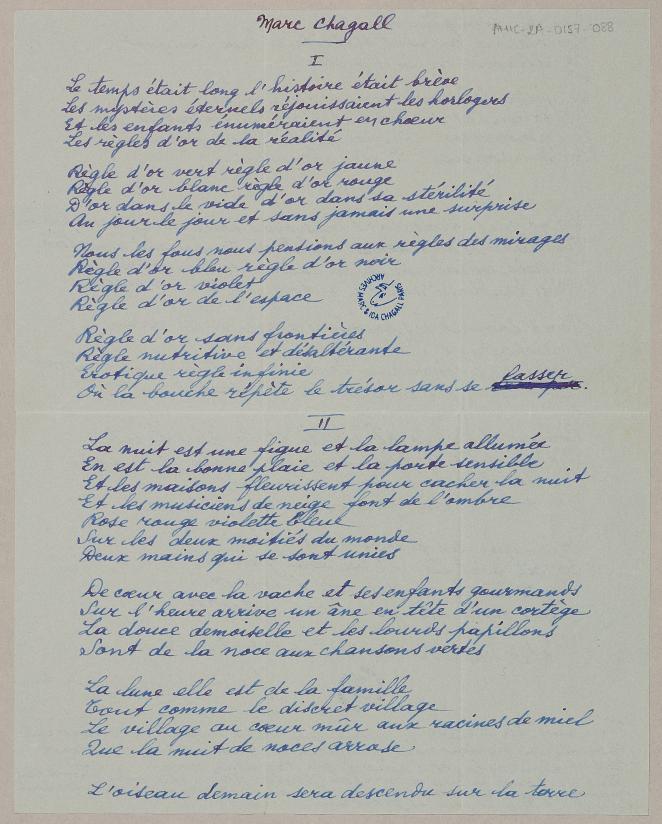 Marc Chagall
AMIC-2A-0157-088
I
Le temps était long l'histoire était brève
Les mystères éternels réjouissaient les horlogers
Et les enfants énuméraient en chœur
Les règles d'or de la réalité
Règle d'or vert règle d'or jaune
Règle d'or blanc règle d'or rouge
D'or dans le vide d'or dans sa stérilité
Au jour le jour et sans jamais une surprise
Nous les fous nous pensions aux règles des mirages
Règle d'or bleu règle d'or noir
Règle d'or violet
Règle d'or de l'espace
ARCHIVES MARC & IDA CHAGALL PARIS
Règle d'or sans frontières
Règle nutritive et désaltérante
Erotique règle infinie
Où la bouche répète le trésor sans se lasser.
II
La nuit est une figue et la lampe allumée
En est la bonne plaie et la porte sensible
Et les maisons fleurissent pour cacher la nuit
Et les musiciens de neige font de l'ombre
Rose rouge violette bleue
Sur les deux moitiés du monde
Deux mains qui se sont unies
De cœur avec la vache et ses enfants gourmands
Sur l'heure arrive un âne en tête d'un cortège
La douce demoiselle et les lourds papillons
Sont de la noce aux chansons vertes
La lune elle est de la famille
Tout comme le discret village
Le village au cœur mûr aux racines de miel
Que la nuit de noces arrose
L'oiseau demain sera descendu sur la terre